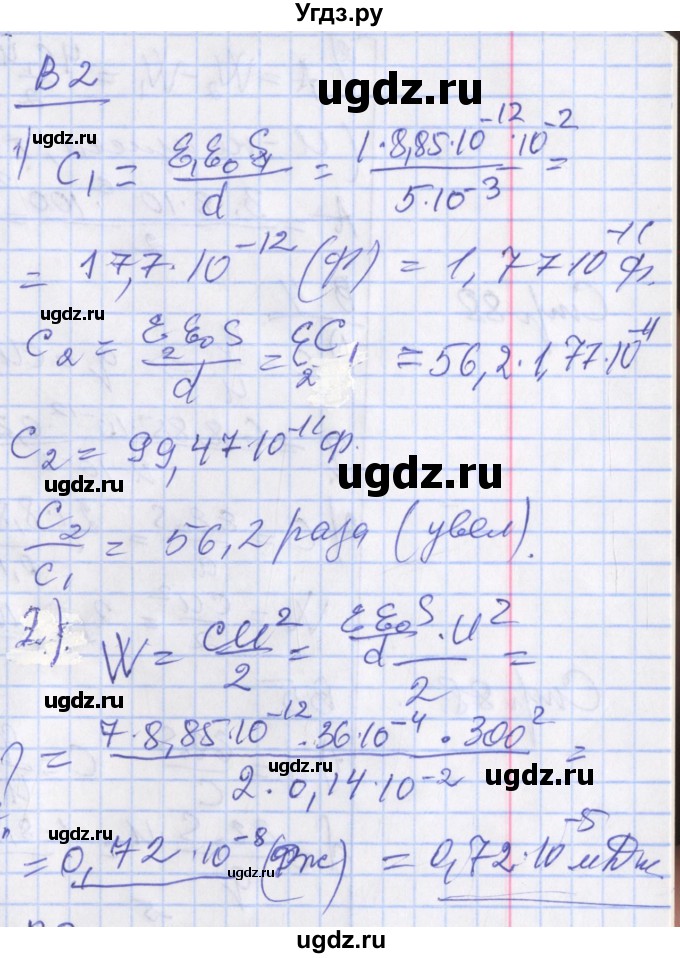 Угдз.ру
В2
ugdz.ru
ugdz.ru
1) C₁ = ε₁ε₀S₁/d = 1·8,85·10⁻¹²·10⁻²/5·10⁻³ =
= 17,7·10⁻¹² (Ф) = 1,77·10⁻¹¹ Ф.
ugdz.ru
C₂ = ε₂ε₀S/d = ε₂C₁ = 56,2·1,77·10⁻¹¹
ugdz.ru
C₂ = 99,47·10⁻¹¹ Ф.
ugdz.ru
ugdz.ru
C₂/C₁ = 56,2 раза (увел).
ugdz.ru
2). W = CU²/2 = εε₀S/d·U²/2 =
ugdz.ru
= 7·8,85·10⁻¹²·36·10⁻⁴·300²/2·0,14·10⁻² =
ugdz.ru
ugdz.ru
ugdz.ru
= 0,72·10⁻⁸ (Дж) = 0,72·10⁻⁵ мДж
ugdz.ru
ugdz.ru